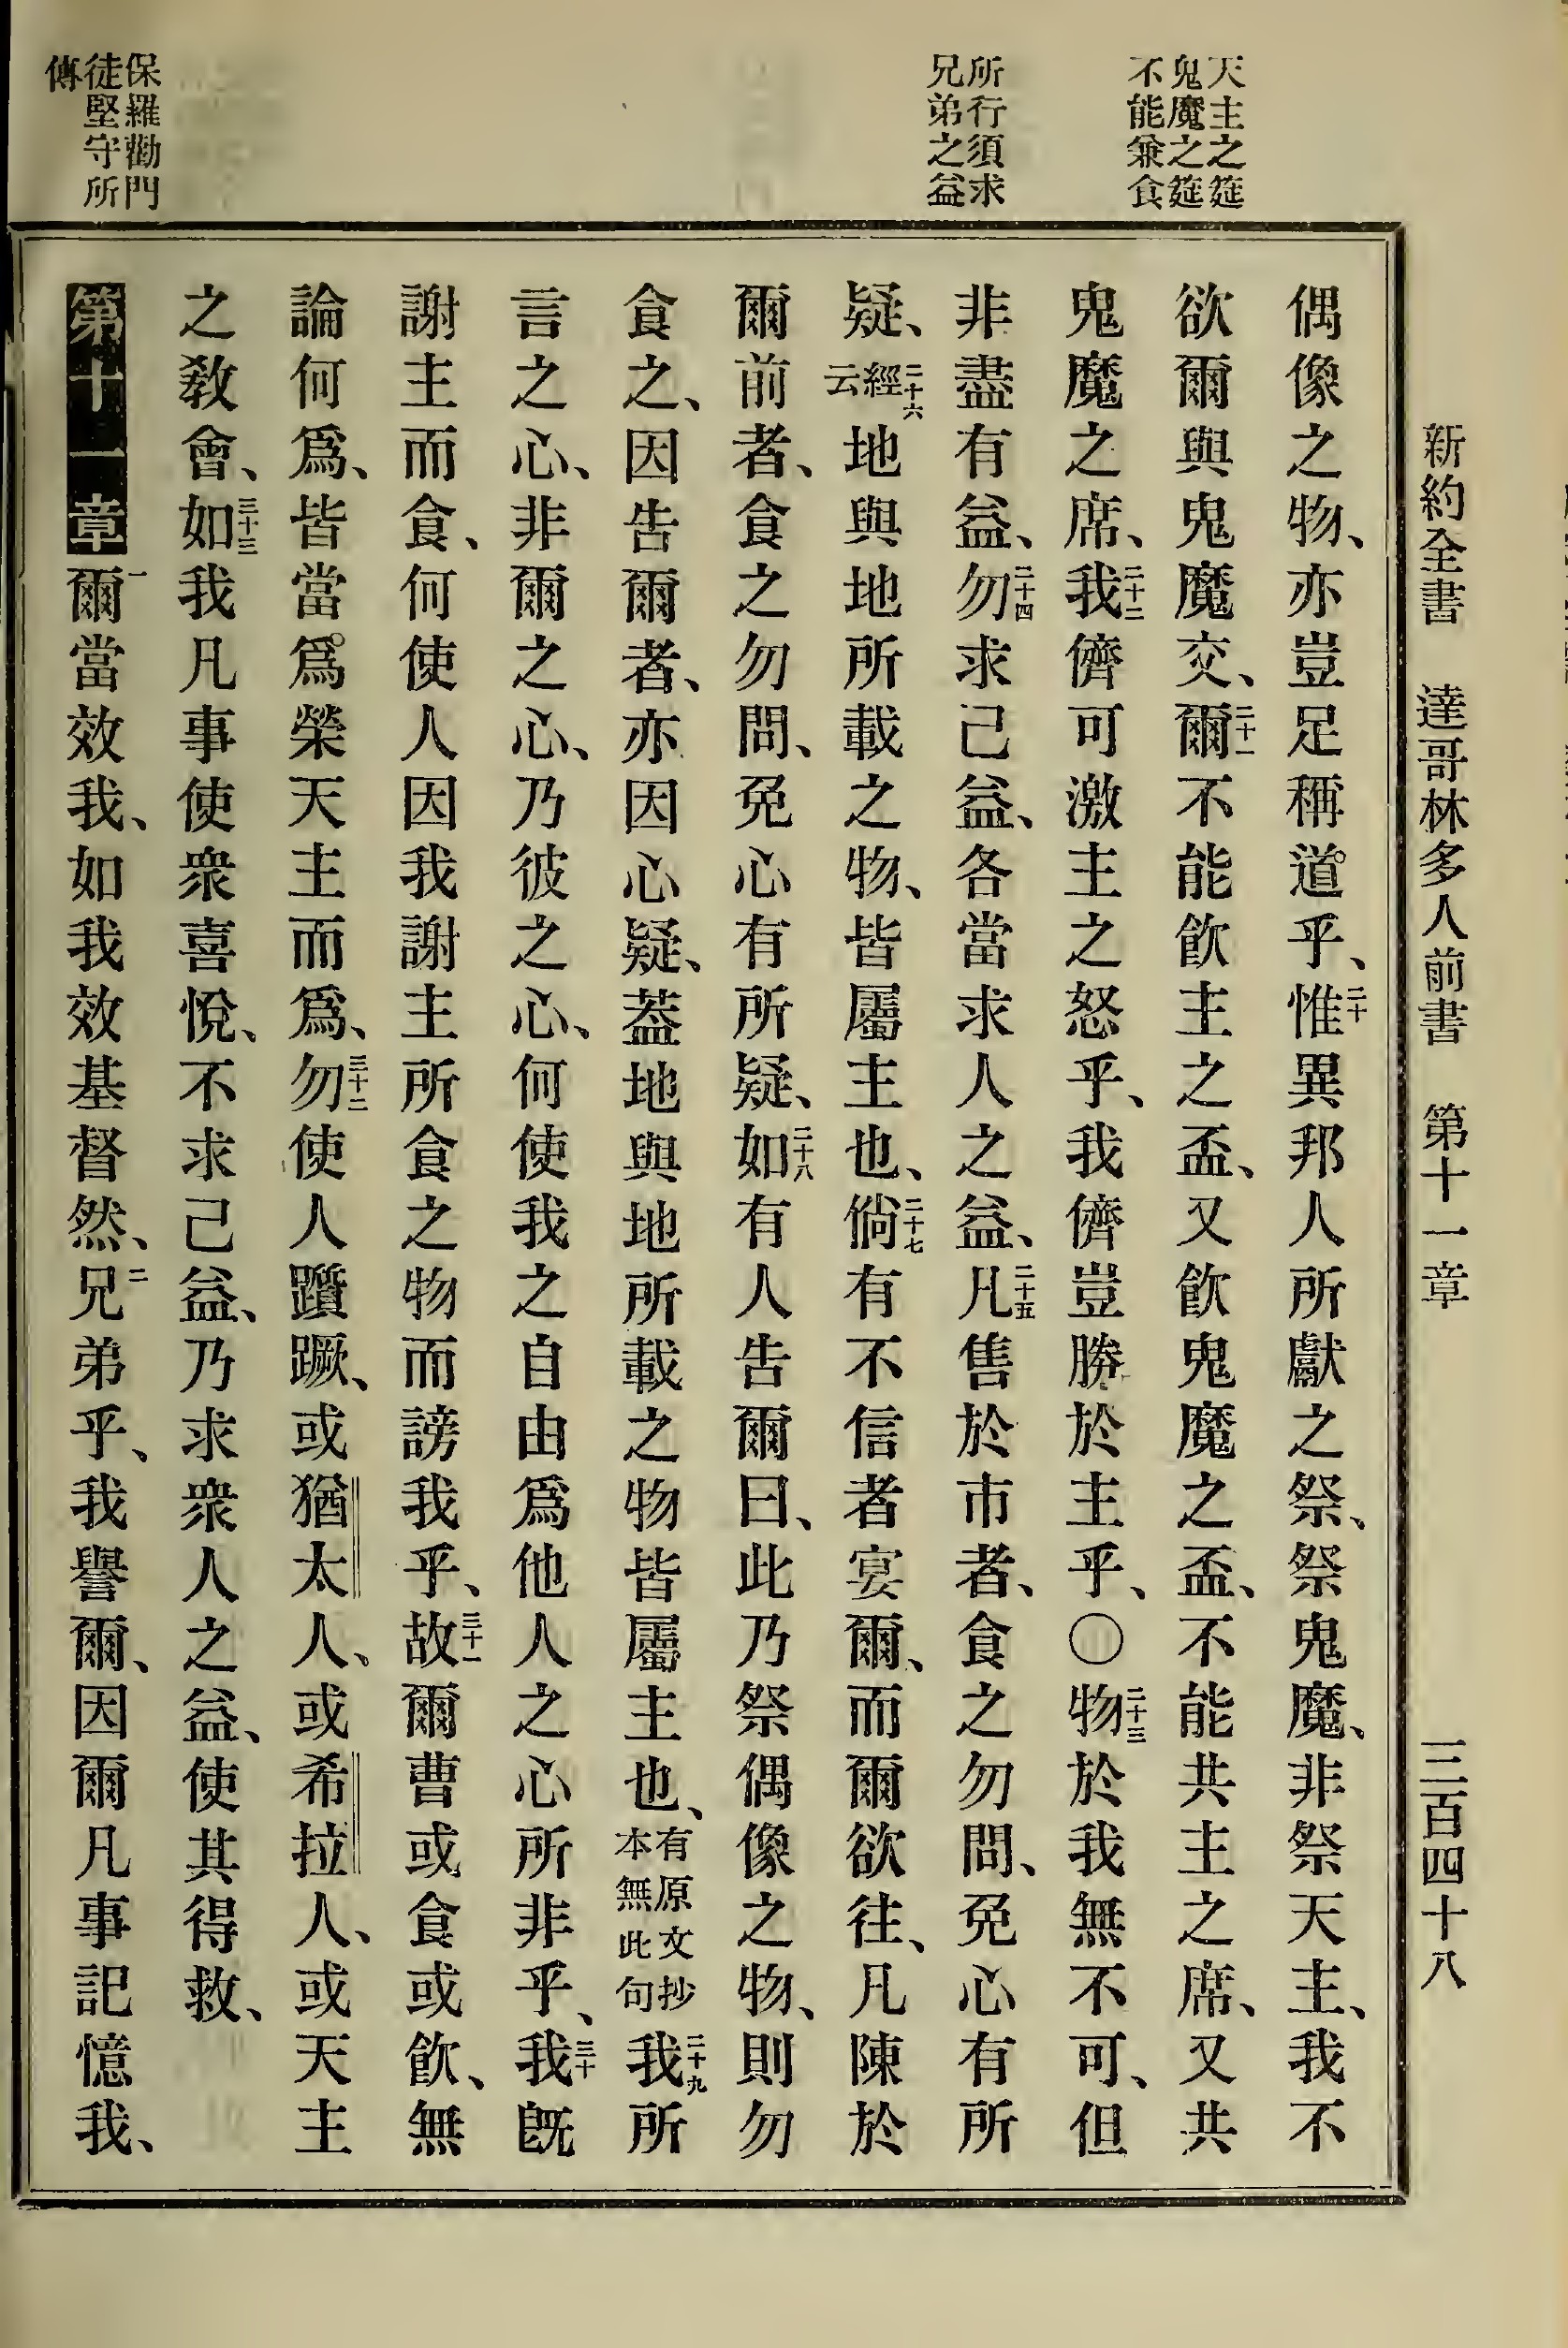 新約全書 達哥林多人前書 第十一章 三百四十八
天主之筵
鬼魔之筵
不能兼食
所行須求
兄弟之益
保羅勸門
徒堅守所
傳
偶像之物、亦豈足稱道乎、二十惟異邦人所獻之祭、祭鬼魔、非祭天主、我不
欲爾與鬼魔交、二十一爾不能飲主之盃、又飲鬼魔之盃、不能共主之席、又共
鬼魔之席、二十二我儕可激主之怒乎、我儕豈勝於主乎、〇二十三物於我無不可、但
非盡有益、二十四勿求己益、各當求人之益、二十五凡售於市者、食之勿問、免心有所
疑、二十六經云地與地所載之物、皆屬主也、二十七倘有不信者宴爾、而爾欲往、凡陳於
爾前者、食之勿問、免心有所疑、二十八如有人告爾曰、此乃祭偶像之物、則勿
食之、因告爾者、亦因心疑、蓋地與地所載之物皆屬主也、有原文抄本無此句二十九我所
言之心、非爾之心、乃彼之心、何使我之自由爲他人之心所非乎、三十我旣
謝主而食、何使人因我謝主所食之物而謗我乎、三十一故爾曹或食或飲、無
論何爲、皆當爲榮天主而爲、三十二勿使人躓蹶、或猶太人、或希拉人、或天主
之敎會、三十三如我凡事使衆喜悅、不求己益、乃求衆人之益、使其得救、
第十一章 一爾當效我、如我效基督然、二兄弟乎、我譽爾、因爾凡事記憶我、